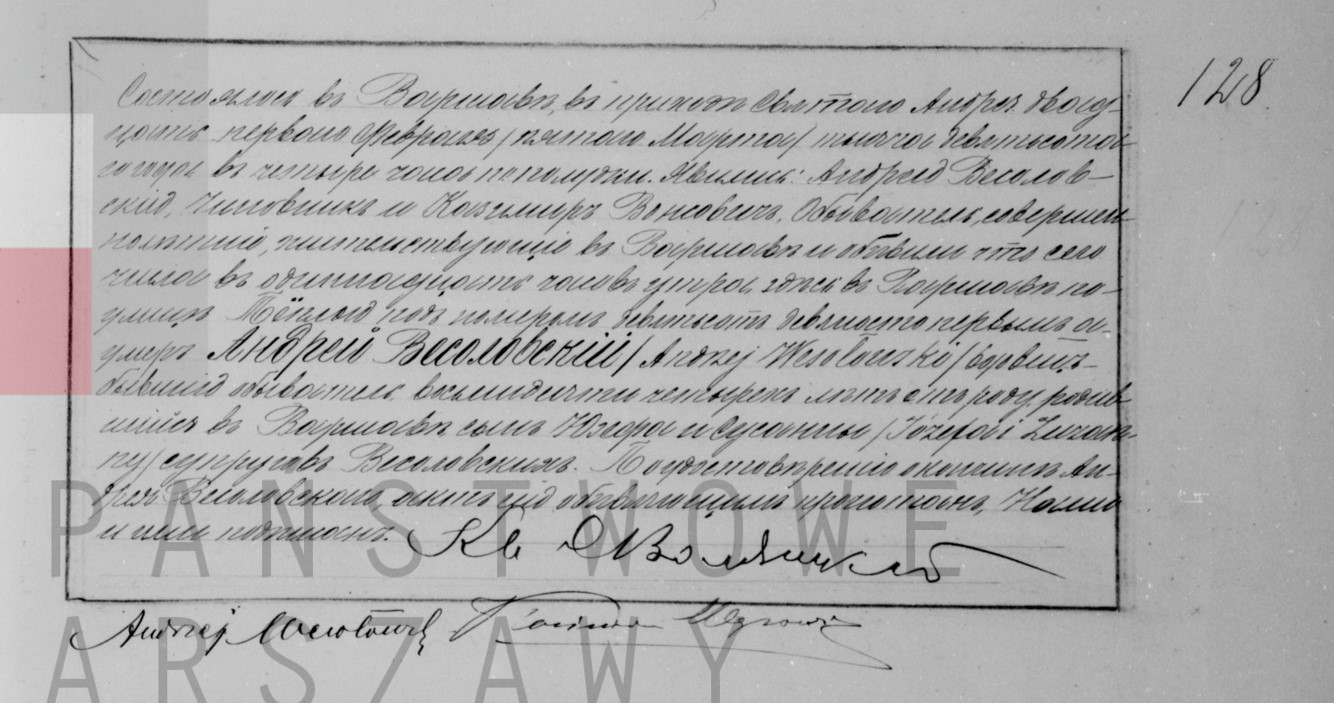 128.
Состоялось въ Варшавѣ, въ приходѣ Святаго Андрея двад-
цать перваго Февраля /пятаго Марта/ тысяча девятьсотаго
года въ четыре часа по полудни. Явились: Андрей Весолов-
скій, Чиновникъ и Казимиръ Вонсовичъ, Обыватель, совершен-
нолѣтніе, жительствующіе въ Варшавѣ и объявили что сего
числа въ одиннадцать часовъ утра, здѣсь въ Варшавѣ по
улицѣ Тёплой подъ номеромъ девятьсотъ девяносто первымъ
умеръ Андрей Весоловскій /Andrzej Wesołowski/ вдовецъ
бывшій обыватель восьмидесяти четырехъ лѣтъ отъ роду родив-
шійся въ Варшавѣ сынъ Юзефа и Сусанны /Józefa i Zuzan-
ny/ супруговъ Весоловскихъ. По удостовѣреніи о кончинѣ Ан-
дрея Весоловскаго, актъ сей объявляющимъ прочитанъ, Нами
и ими подписанъ.
Andrzej Wesołowski Kazimierz
PAŃSTWOWE
ARSZAWY